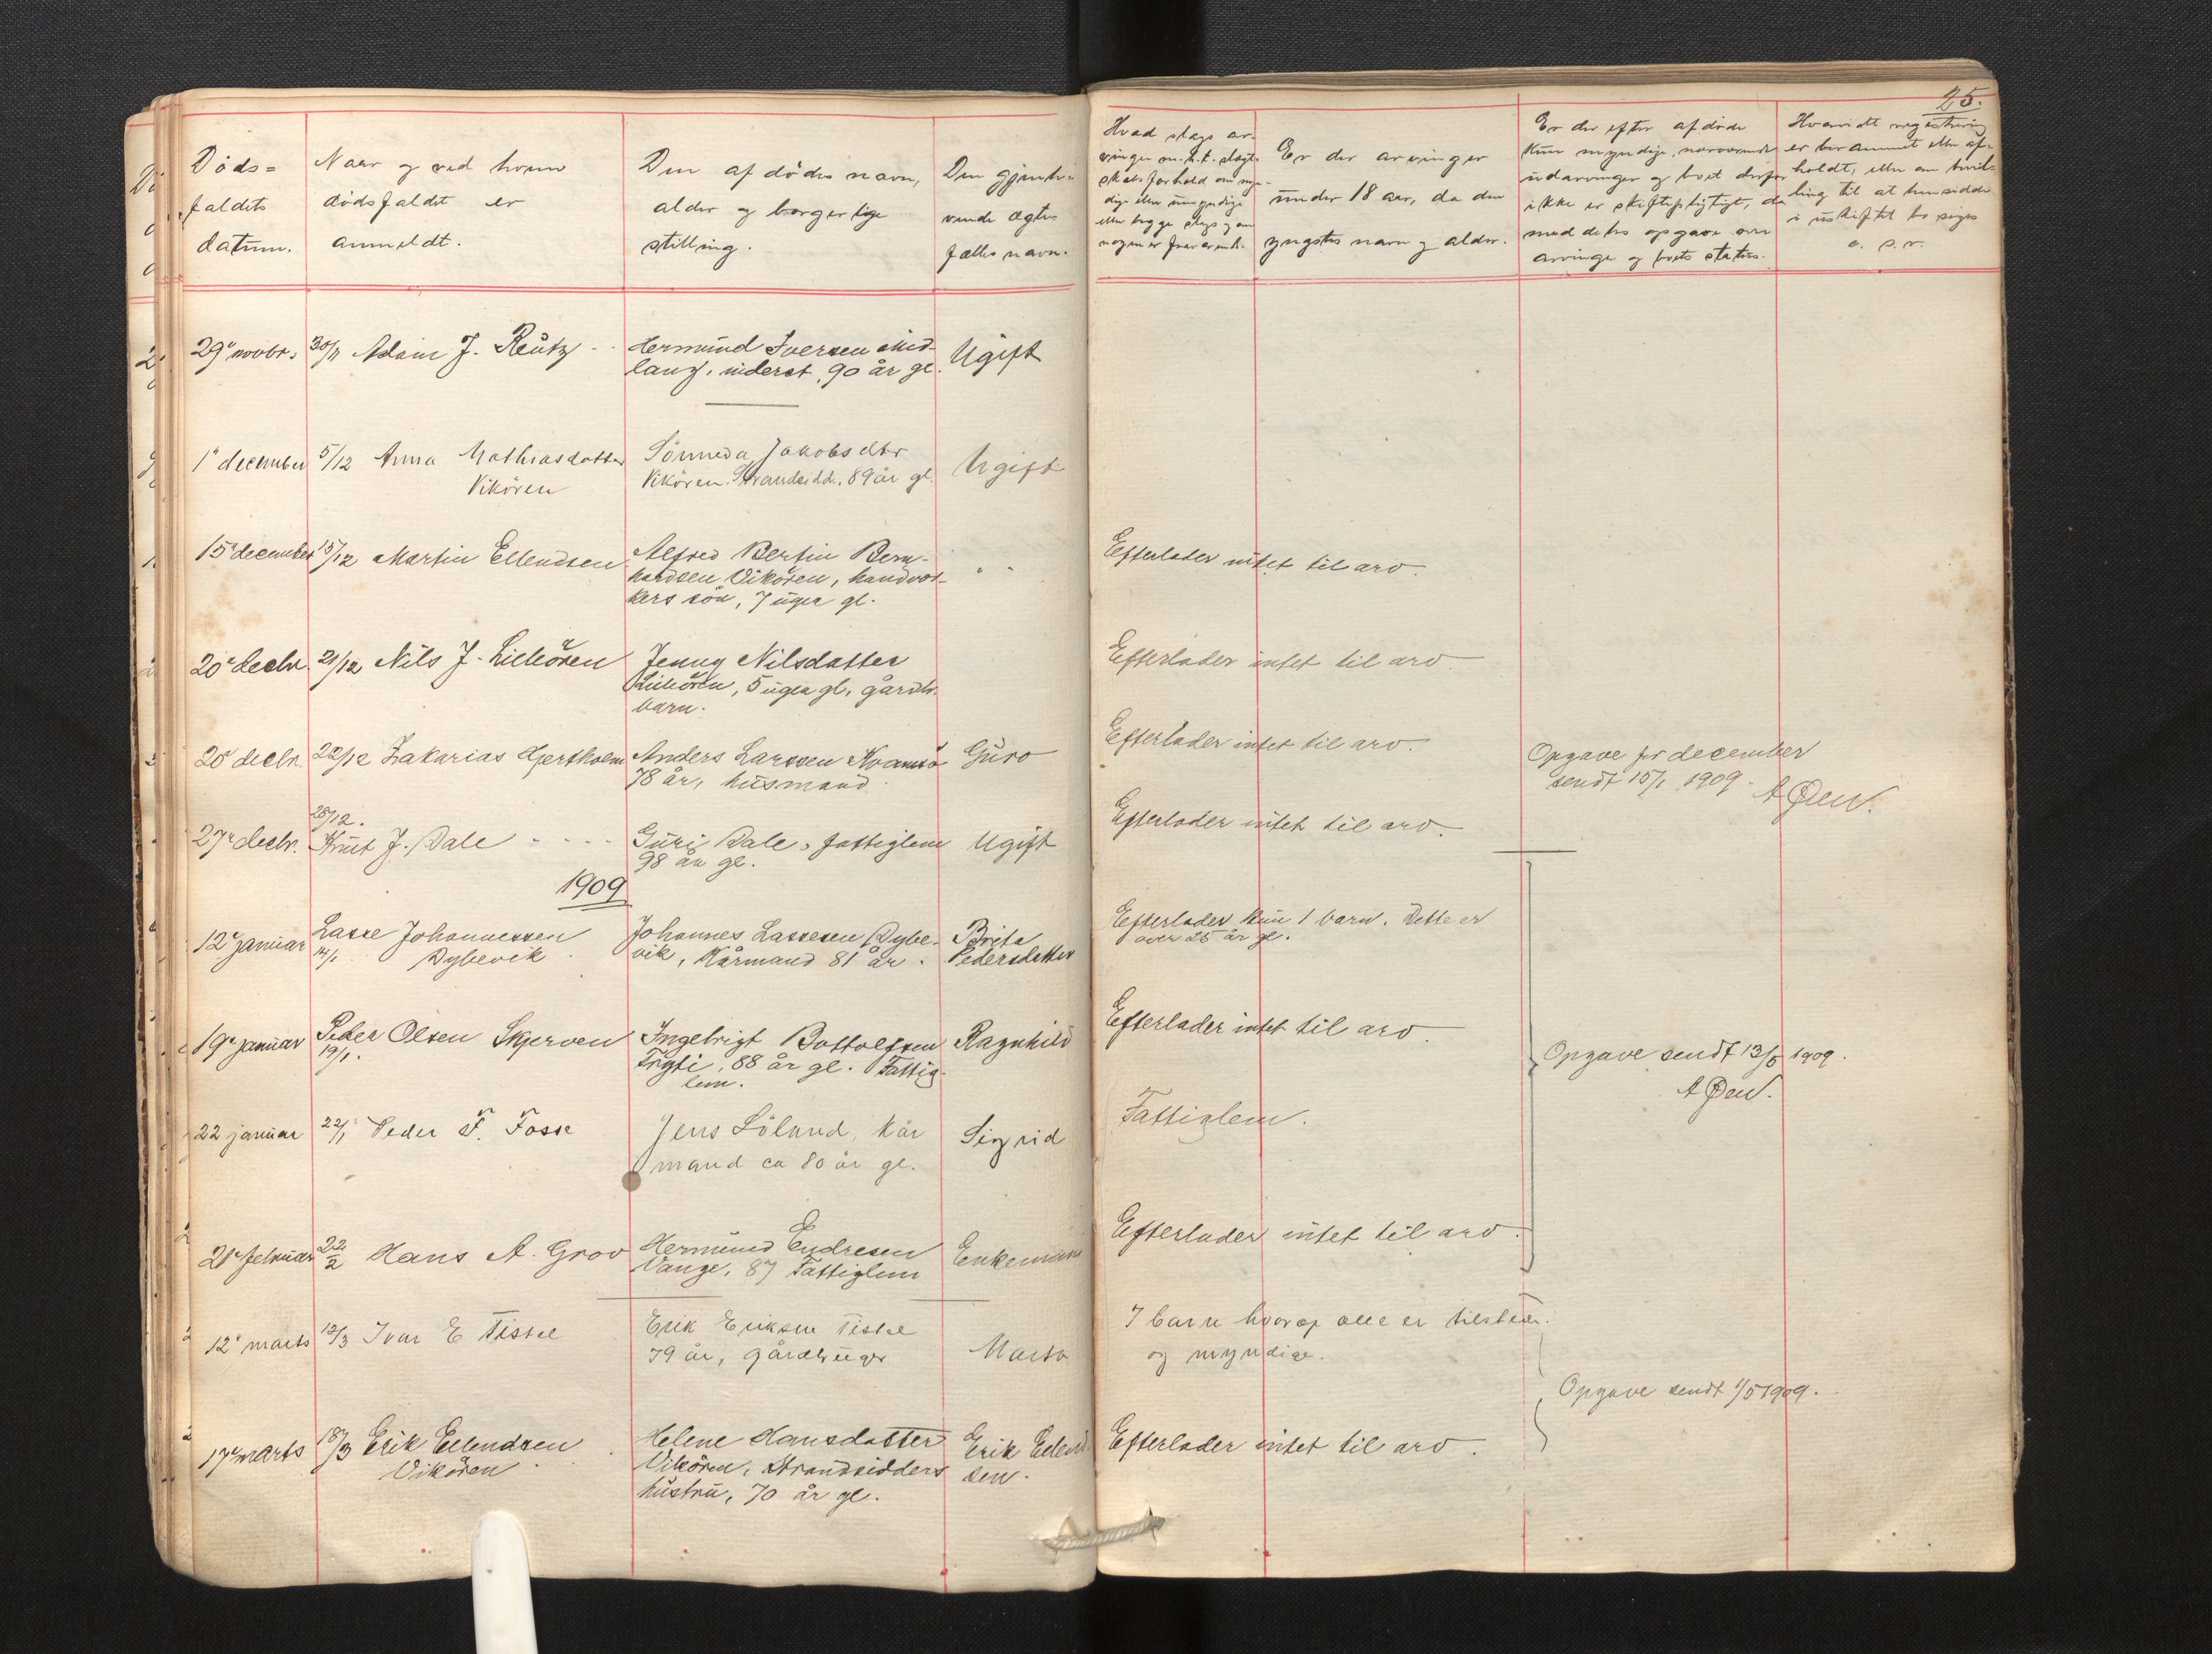 25.
Döds-
faldets
datum.
Naar og ved hvem
dödsfaldet er
anmeldt.
Den afdödes navn,
alder og borgerlige
stilling.
Den gjenle-
vende ægte-
fælles navn.
Hvad slags ar-
vinger
skabsforhold om myn-
dige eller umyndige
eller begge slags og om
nogen er fraværende.
Er der arvinger
under 18 aar, da den
yngstes navn og alder.
Er der efter afdöde
kun myndige, nærværende
udarvinger og boet derfor
ikke er skiftepligtigt, da
meddeles opgave over
arvinge og boets status.
Hvorvidt registrering
er berammet eller af-
holdt, eller om bevil-
ling til at hensidde
i uskiftet bo
29' novbr. 30/11 Adam J. Reutz Hermund Iversen Mid-
lang, inderst, 90 år gl. Ugift
1' december 5/12 Anna Mathiasdatter Sönneva Jakobsdtr
Vikören Vikören. Strandsidd., 89 år gl. Ugift
15' december 15/12 Martin Ellendsen Alfred Bertin Bern-
hardsen Vikören, handvær-
kers sön, 7 uger gl. " "
Efterlader intet til arv.
20' decbr. 21/12 Nils J. Liekören Jenny Nilsdatter
Liekören, 5 uger gl, gårdbr.
barn.
Efterlader intet til arv.
20' decbr. 22/12 Zakarias Hjertholm Anders Larssen Kvamsö Guro
78 år, husmand
Efterlader intet til arv.
Opgave for december
sendt 15/1 1909.
A Öen.
28/12.
27' decbr. Knut J. Dale Guri Dale, fattiglem Ugift
98 år gl.
Efterlader intet til arv.
1909
12' januar Lasse Johannessen Johannes Lassesen Dybe- Brita
14/1 Dybevik vik, Kårmand 81 år. Pedersdatter
Efterlader kun 1 barn. Dette er
over 25 år gl.
19' januar Peder Olsen Skjerven Ingebrigt Bottolfsen Ragnhild
19/1. 88 år gl. Fattig-
lem.
Efterlader intet til arv.
Opgave sendt 13/5 1909.
A Öen.
22 januar 22/1 Peder F. Fosse Jens Löland, kår Sigrid
mand ca 80 år gl.
Fattiglem.
21' februar 22/2 Hans A. Grov Hermund Endresen Enkemand
Vange, 87 Fattiglem
Efterlader intet til arv.
12' marts 13/3 Ivar E Tistel Erik Eriksen Tistel
79 år, gårdbruger Marta
7 barn hvoraf alle er tilstede.
og myndige.
Opgave sendt 1/5 1909.
17' marts 18/3 Erik Eelendsen Helene Hansdatter Erik Eelend
Vikören Vikören, Strandsidders sen.
hustru, 70 år gl.
Efterlader intet til arv.